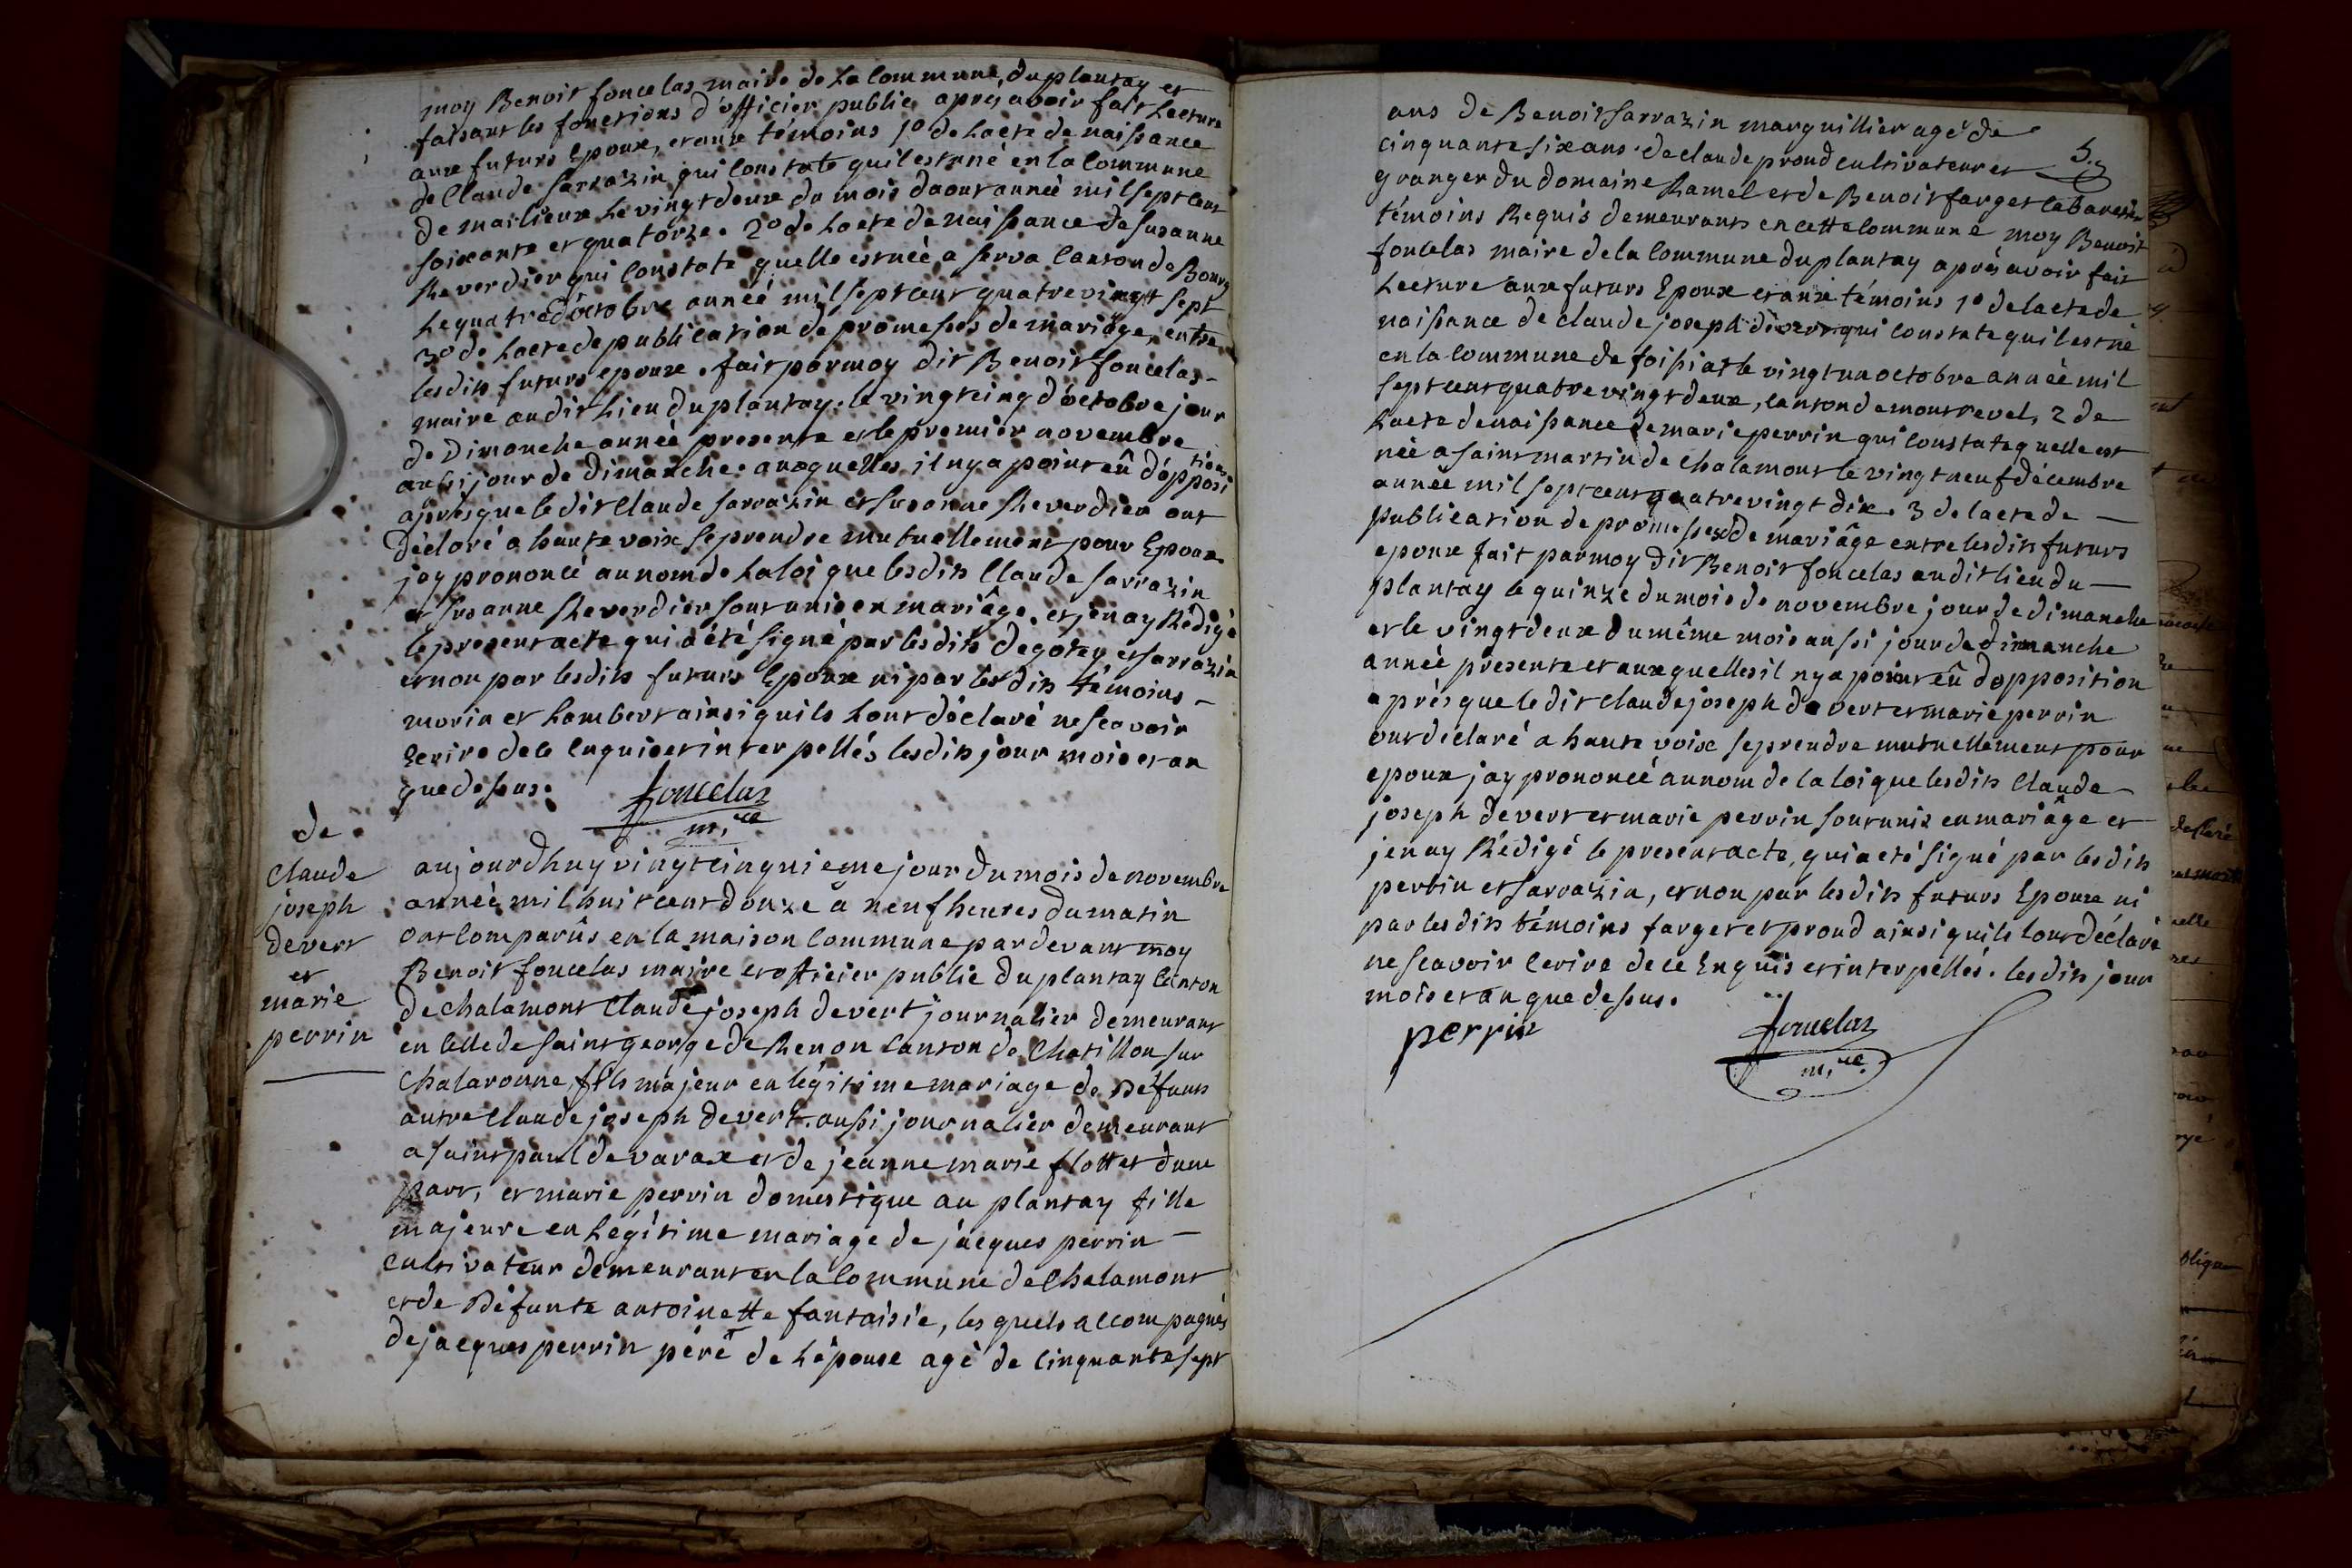 moy Benoit foncelas maire de La Commune, duplantay et
faisant les fonctions d'officier public aprés avoir fait Lecture
aux futurs Epoux, et aux témoins 1º de Lacte de naissance
de Claude Sarrazin qui constate quil est né en la Commune
de marlieux Le vingt deux du mois daout année mil sept cent
soixante et quatorze. 2º de Lacte de naissance de Susanne
Reverdier qui constate quelle est née a Serva canton de Bourg
Le quatre d'octobre année mil sept cent quatre vingt sept
3º de Lacte de publication de promesses de mariâge, entre
lesdits futurs epoux. fait par moy dit Benoit foncelas -
maire audit Lieu duplantay. le vingt cinq d'octobre jour
de Dimanche année presente et le premier novembre
aussi jour de dimanche. auxquelles il ny a point eû d'opposi
tion
aprés que le dit Claude Sarrazin et Susanne Reverdier ont
déclaré a haute voix se prendre mutuellement pour Epoux
jay prononcé au nom de La loi que lesdits Claude Sarrazin
et Susanne Reverdier sont unis en mariâge. et jen ay Rédigé
le present acte qui a été signé par lesdits degotey et sarrazin
et non par lesdits futurs Epoux ni par lesdits témoins -
morin et Lambert ainsi quils Lont déclaré ne scavoir
Ecrire de ce Enquis et interpellés lesdits jour mois et an
que dessus.
foncelas
m.re
de
Claude
joseph
devert
et
marie
perrin
aujourdhuy vingt cinquieme jour du mois de novembre
année mil huit cent douze a neuf heures du matin
ont comparûs en la maison Commune par devant moy
Benoit foncelas maire et officier public du plantay Canton
de chalamont Claude joseph devert journalier demeurant
en celle de Saint george de Renon canton de Chatillon sur
chalaronne, fils majeur en légitime mariage de Défunts
autre Claude joseph devert. aussi journalier demeurant
a Saint paul de varax et de jeanne marie flottet dune
part, et marie perrin domestique au plantay fille
majeure en Légitime mariage de jacques perrin -
cultivateur demeurant en la Commune de Chalamont
et de Défunte antoinette fantaisie, les quels accompagnés
de jacques perrin péré de Lépouse agé de cinquante sept
5.
ans de Benoit Sarrazin marguillier agé de
cinquante six ans. de claude proud cultivateur et
granger du domaine hamel et de Benoit farget
témoins Requis demeurants en cette Commune moy Benoit
foncelas maire de la Commune du plantay aprés avoir fait
Lecture aux futurs Epoux et aux témoins 1º de lacte de
naissance de claude joseph devert qui constate quil est né
en la Commune de foissiat le vingt un octobre année mil
sept cent quatre vingt deux, canton de montrevel, 2 de
Lacte de naissance de marie perrin qui constate quelle est
née a saint martin de chalamont le vingt neuf décembre
année mil sept cent quatre vingt dix. 3 de lacte de —
publication de promesses de mariâge entre lesdits futurs
epoux fait par moy dit Benoit foncelas audit lieu du —
plantay le quinze du mois de novembre jour de dimanche
et le vingt deux du même mois aussi jour de dimanche
année presente et aux quelles il ny a point eû dopposition
aprés que le dit claude joseph devert et marie perrin
ont déclaré a haute voix se prendre mutuellement pour
epoux jay prononcé au nom de la loi que lesdits Claude -
joseph devert et marie perrin sont unis en mariâge et
jen ay Rédigé le present acte, qui a eté signé par lesdits
perrin et sarrazin, et non par lesdits futurs Epoux ni
par lesdits témoins farget et proud ainsi quils lont déclaré
ne scavoir Ecrire de ce Enquis et interpellés. lesdits jour
mois et an que dessus.
perrin
foncelas
m.re